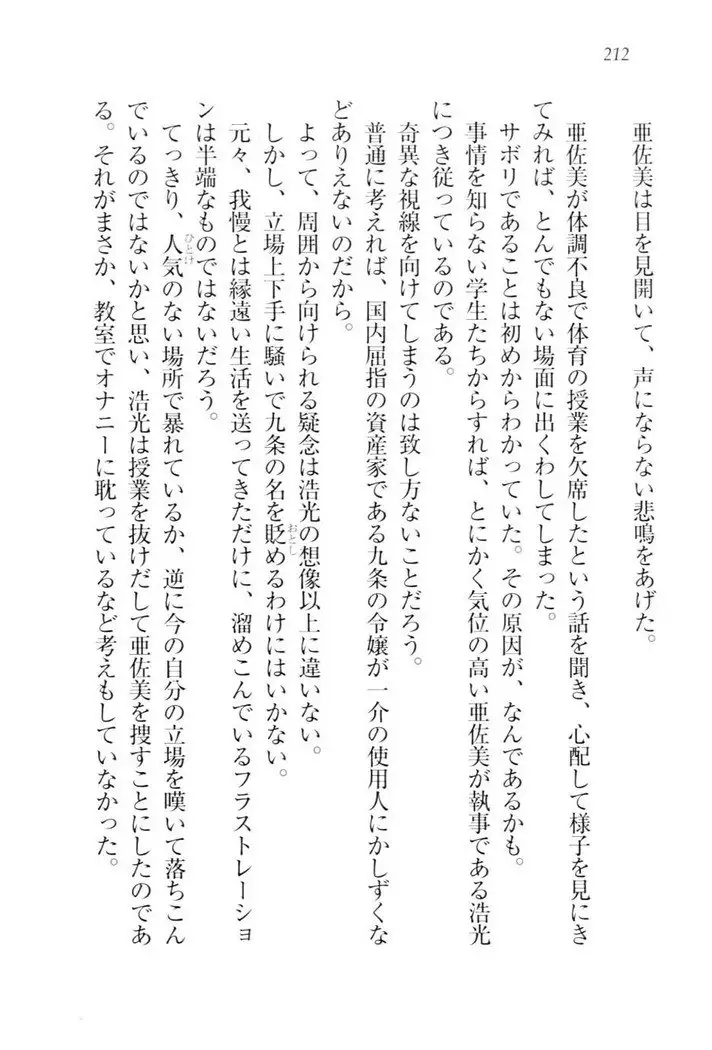 212
亜佐美は目を見開いて、声にならない悲鳴をあげた。
亜佐美が体調不良で体育の授業を欠席したという話を聞き、心配して様子を見にき
てみれば、とんでもない場面に出くわしてしまった。
サボリであることは初めからわかっていた。その原因が、なんであるかも。
事情を知らない学生たちからすれば、とにかく気位の高い亜佐美が執事である浩光
につき従っているのである。
奇異な視線を向けてしまうのは致し方ないことだろう。
普通に考えれば、国内屈指の資産家である九条の令嬢が一介の使用人にかしずくな
どありえないのだから。
よって、周囲から向けられる疑念は浩光の想像以上に違いない。
しかし、立場上下手に騒いで九条の名を貶めるわけにはいかない。
おとし
元々、我慢とは縁遠い生活を送ってきただけに、溜めこんでいるフラストレーショ
ンは半端なものではないだろう。
てっきり、人気のない場所で暴れているか、逆に今の自分の立場を嘆いて落ちこん
ひとけ
でいるのではないかと思い、浩光は授業を抜けだして亜佐美を捜すことにしたのであ
る。それがまさか、教室でオナニーに耽っているなど考えもしていなかった。